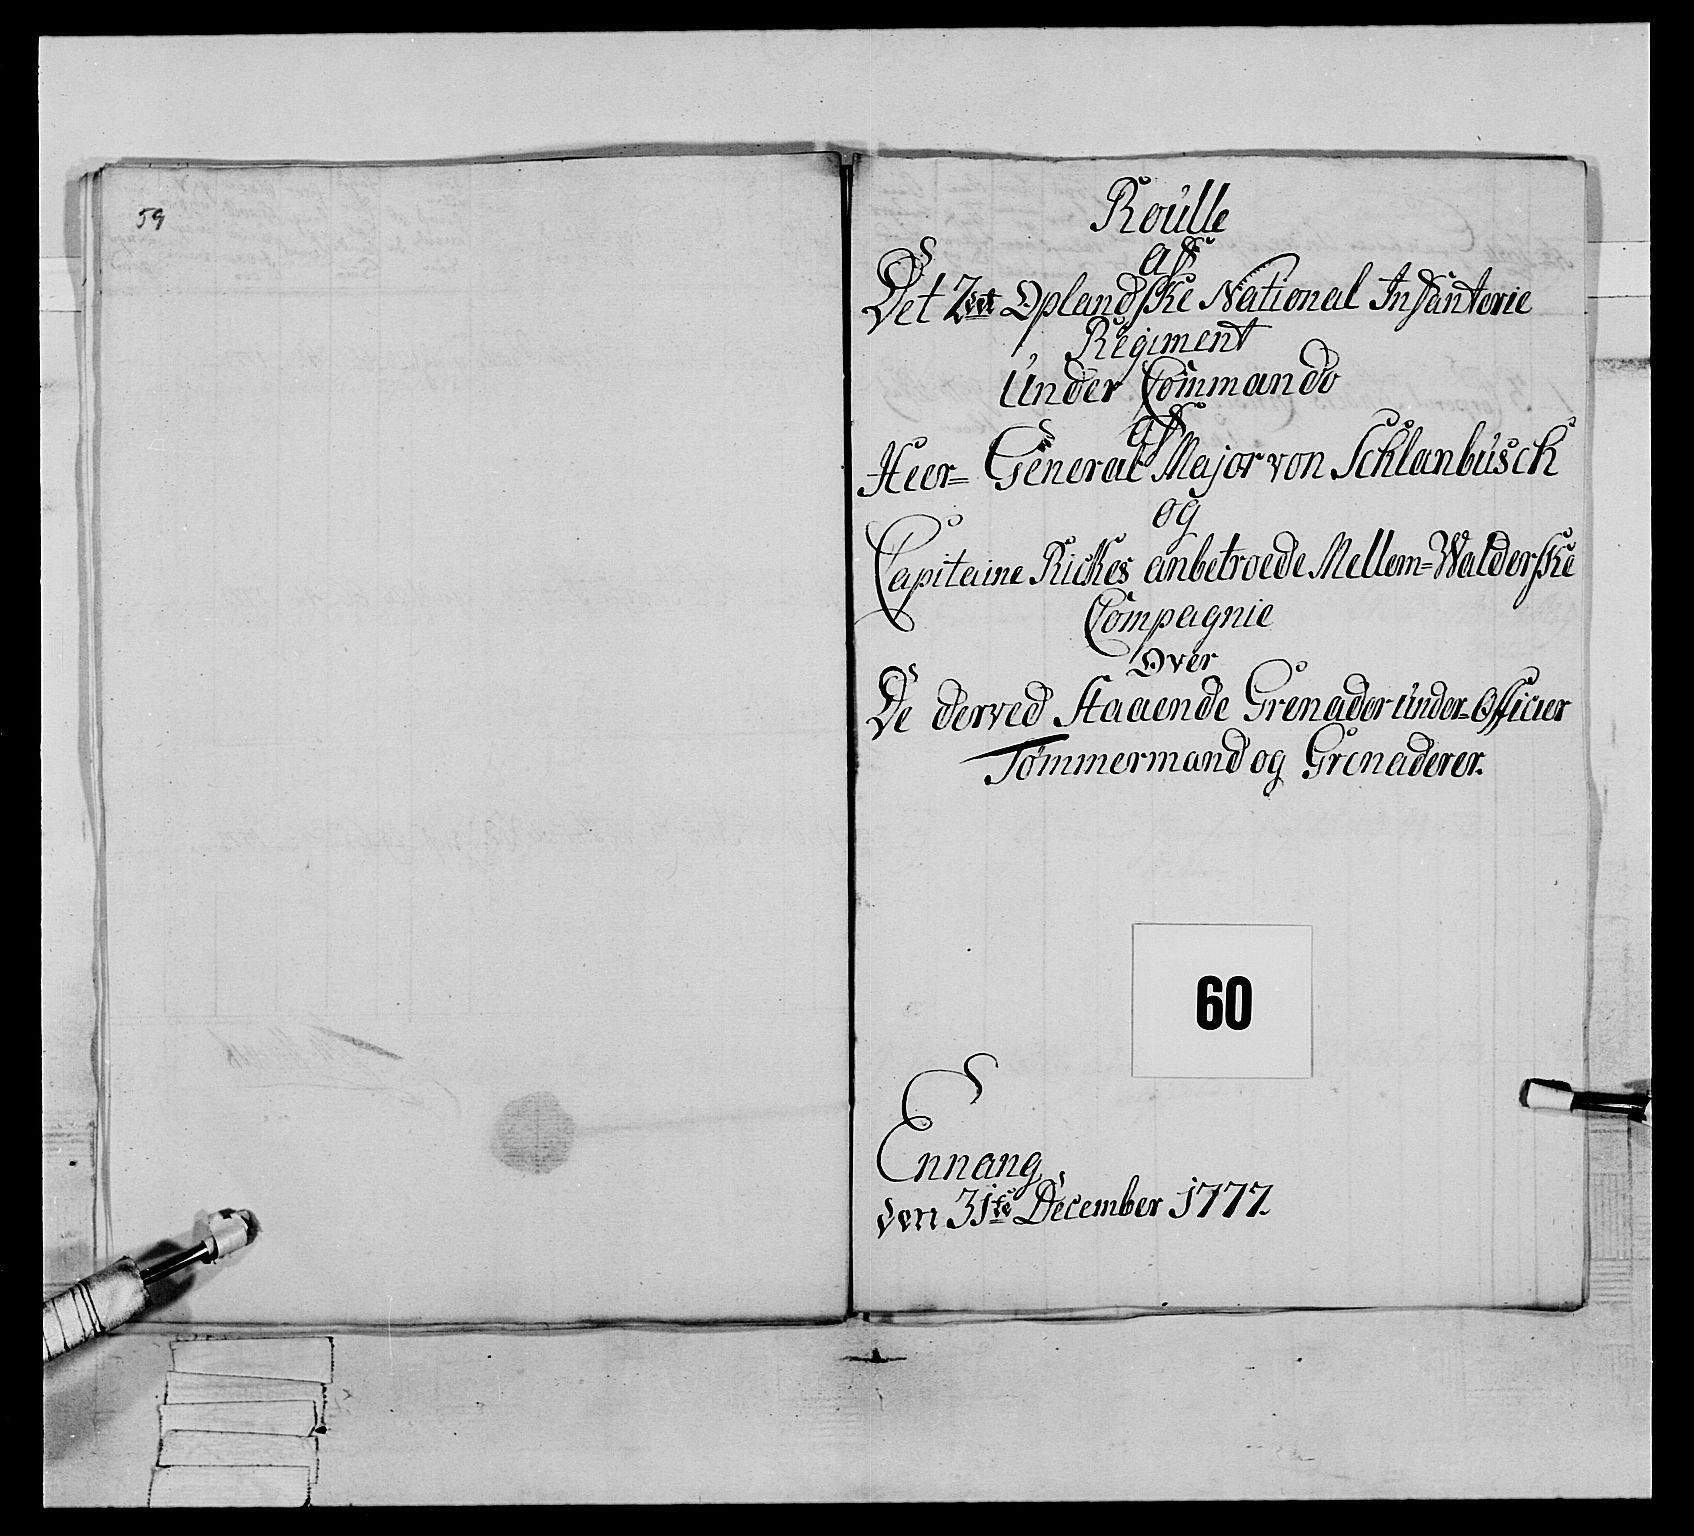 59
Roulle
aff
Det 2det Oplandske National Infanterie
Regiment
Under Commando
aff
Herr= General Major von Schlanbusch
og
Capitaine Rickes anbetroede Mellem=Walderske
Compagnie
Over
De derved staaende Grenader Under=Officier
Tømmermand og Grenaderer.
60
Ennang
den 31te December 1777.